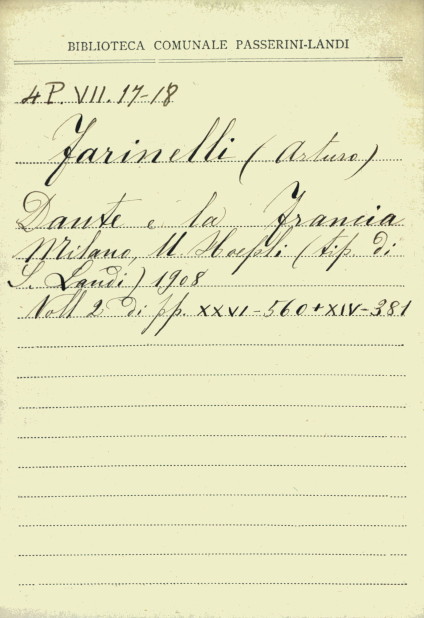 BIBLIOTECA COMUNALE PASSERINI-LANDI
4 P. VII. 17-18
Farinelli (Arturo)
Dante e la Francia
Milano, U. Hoepli (tip. di
S. Landi) 1908
Voll 2 di pp. XXVI-560+XIV-381